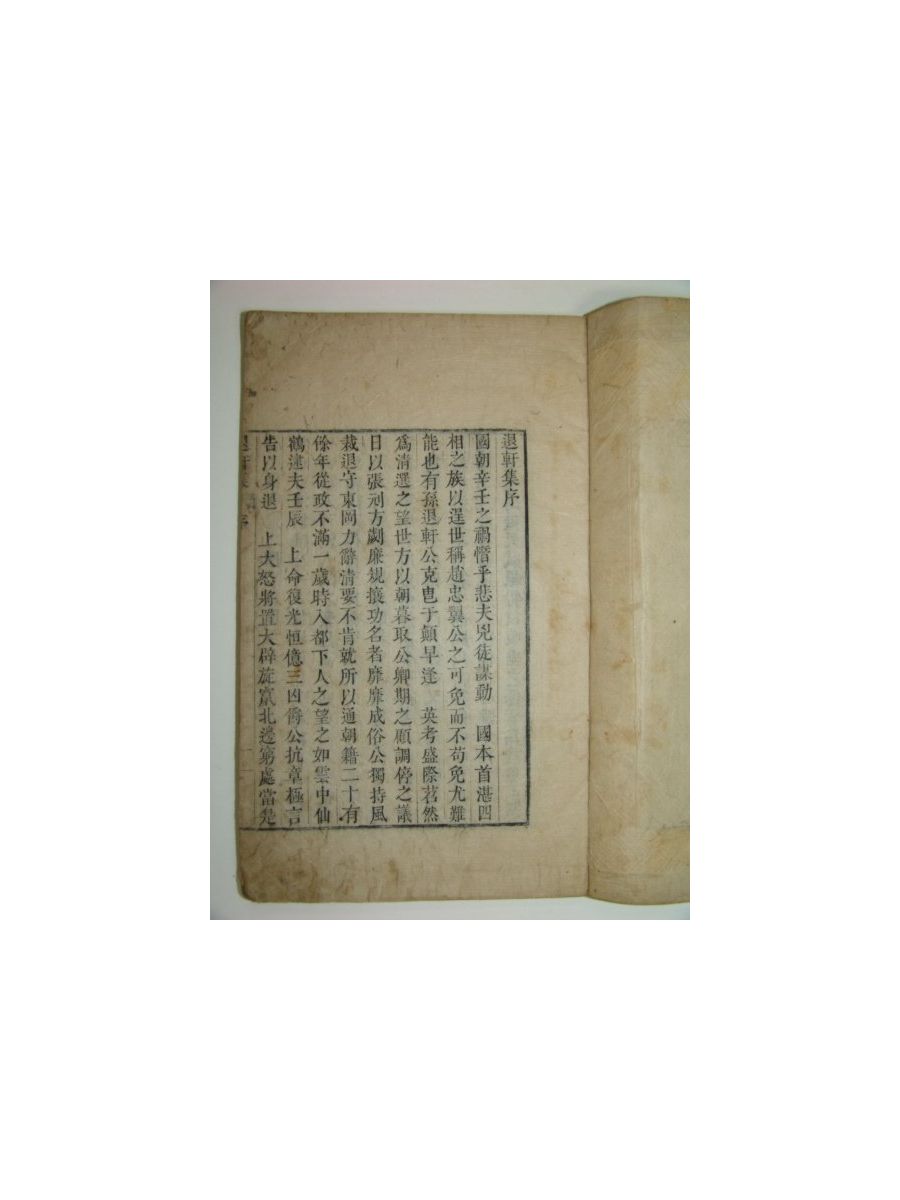 退軒集序
國朝辛壬之禍憯乎悲夫兇徒謀動　國本首湛四
相之族以逞世稱趙忠翼公之可免而不苟免尤難
能也有孫退軒公克皀于顚早逢　英考盛際茗然
爲清選之望世方以朝暮取公卿期之顧調停之議
日以張刓方劌廉規攘功名者靡靡成俗公獨持風
裁退守東岡力辭清要不肯就所以通朝籍二十有
餘年從政不滿一歲時入都下人之望之如雲中仙
鶴逮夫壬辰　上命復光恒億三凶爵公抗章極言
告以身退　上大怒將置大辟旋竄北邊窮處當是
退軒集　序